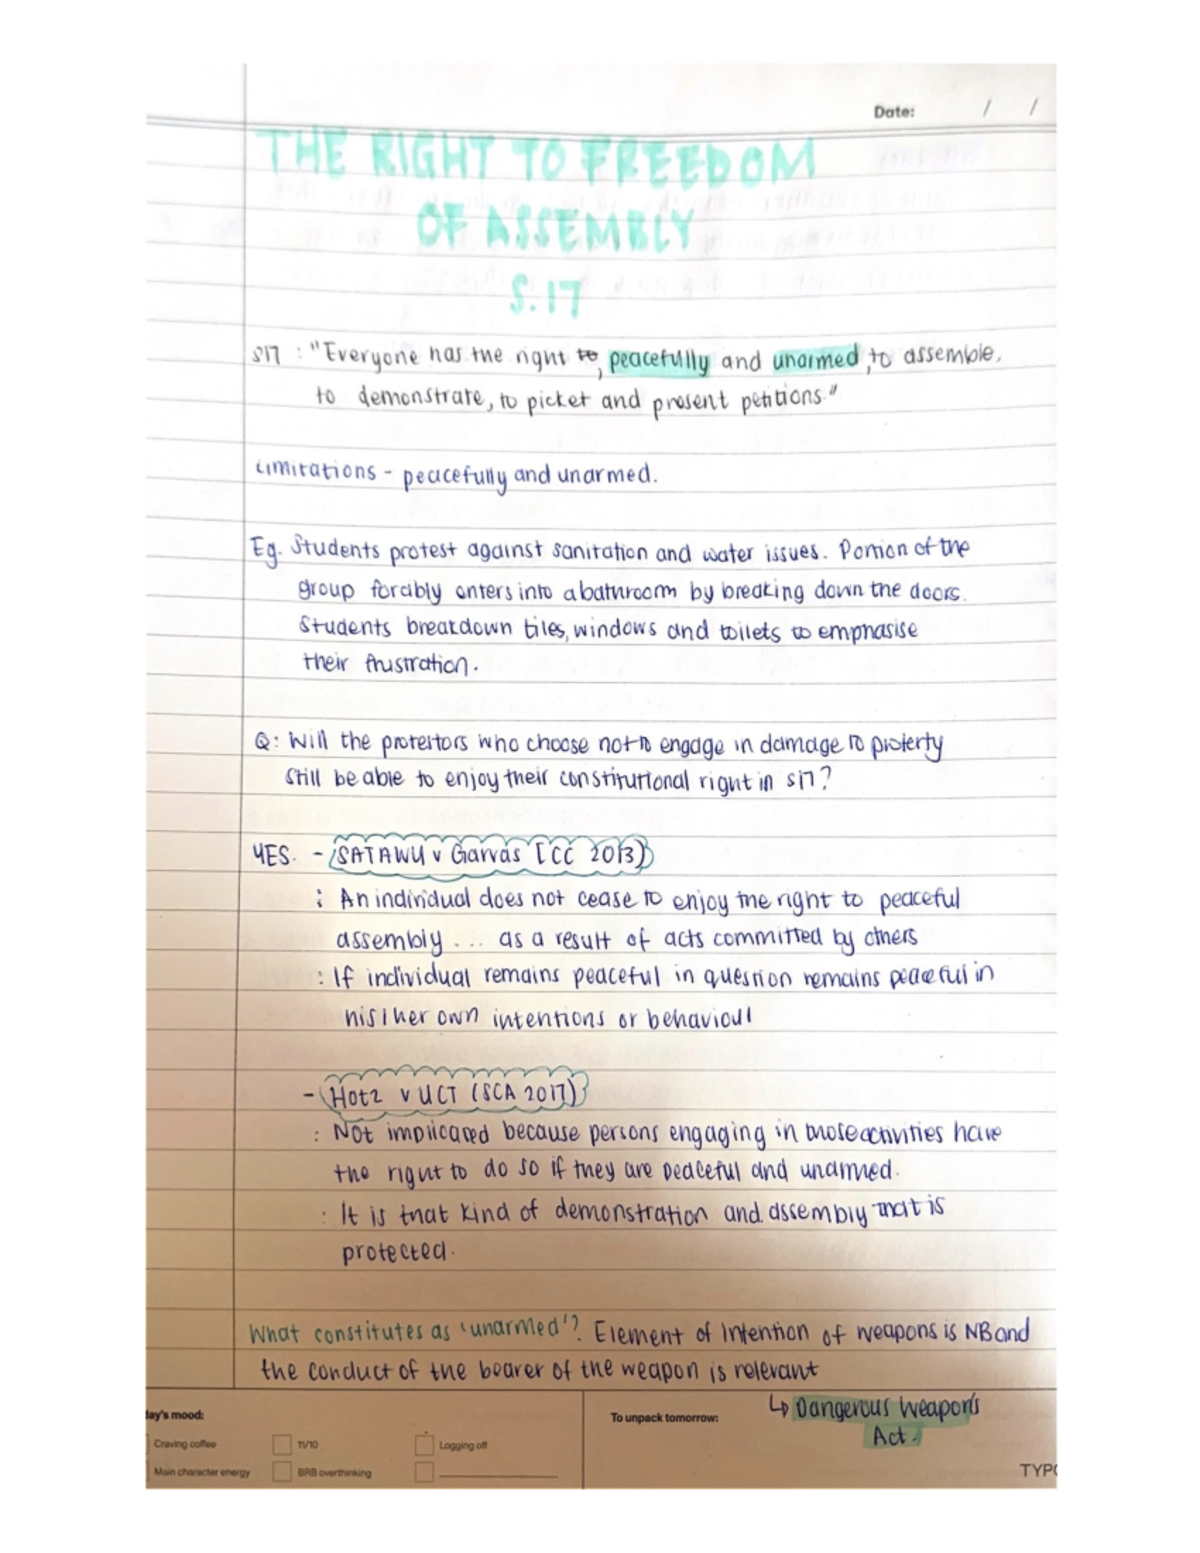 Date: / /
THE RIGHT TO FREEDOM
OF ASSEMBLY
S.17
S17 : "Everyone has the right to, peacefully and unarmed, to assemble,
to demonstrate, to picket and present petitions."
Limitations - peacefully and unarmed.
Eg. Students protest against sanitation and water issues. Portion of the
group forcibly enters into a bathroom by breaking down the doors.
Students breakdown tiles, windows and toilets to emphasise
their frustration.
Q: Will the protestors who choose not to engage in damage to property
still be able to enjoy their constitutional right in s17?
YES. - SATAWU v Garvas [CC 2013)
: An individual does not cease to enjoy the right to peaceful
assembly ... as a result of acts committed by others
: If individual remains peaceful in question remains peaceful in
his/her own intentions or behaviour
- Hotz v UCT (SCA 2017)
: Not implicated because persons engaging in those activities have
the right to do so if they are peaceful and unarmed.
: It is that kind of demonstration and assembly that is
protected.
What constitutes as 'unarmed'? Element of Intention of weapons is NB and
the conduct of the bearer of the weapon is relevant
↳ Dangerous Weapon's
Act.
day's mood:
To unpack tomorrow:
Craving coffee
11/10
Logging off
Main character energy
BRB overthinking
TYPO